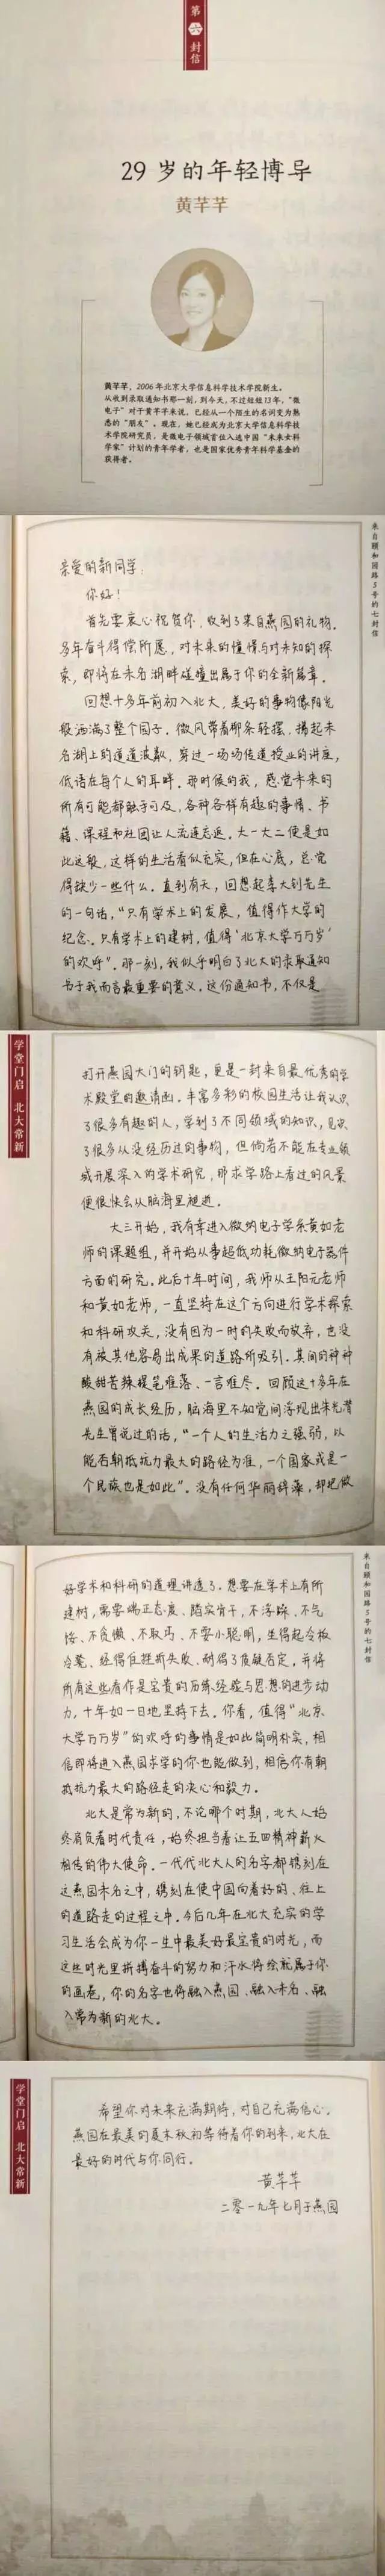 第六封信
29 岁的年轻博导
黄芊芊
黄芊芊，2006 年北京大学信息科学技术学院新生。
从收到录取通知书那一刻，到今天，不过短短13年，“微
电子”对于黄芊芊来说，已经从一个陌生的名词变为熟
悉的“朋友”。现在，她已经成为北京大学信息科学技
术学院研究员，是微电子领域首位入选中国“未来女科
学家”计划的青年学者，也是国家优秀青年科学基金的
获得者。
来自颐和园路5号的七封信
亲爱的新同学：
你好！
首先要衷心祝贺你，收到了来自燕园的礼物。
多年奋斗得偿所愿，对未来的憧憬与对未知的探
索，即将在未名湖畔碰撞出属于你的全新篇章。
回想十多年前初入北大，美好的事物像阳光
般洒满了整个园子。微风带着柳条轻摆，拂起未
名湖上的道道波澜，穿过一场场传道授业的讲座，
低语在每个人的耳畔。那时候的我，感觉未来的
所有可能都触手可及，各种各样有趣的事情、书
籍、课程和社团让人流连忘返。大一大二便是如
此这般，这样的生活看似充实，但在心底，总觉
得缺少一些什么。直到有天，回想起李大钊先生
的一句话，“只有学术上的发展，值得作大学的
纪念。只有学术上的建树，值得‘北京大学万万岁’
的欢呼”。那一刻，我似乎明白了北大的录取通知
书于我而言最重要的意义，这份通知书，不仅是
学堂门启 北大常新
打开燕园大门的钥匙，更是一封来自最优秀的学
术殿堂的邀请函。丰富多彩的校园生活让我认识
了很多有趣的人，学到了不同领域的知识，见识
了很多从没经历过的事物，但倘若不能在专业领
域开展深入的学术研究，那求学路上看过的风景
便很快会从脑海里褪逝。
大三开始，我有幸进入微纳电子学系黄如老
师的课题组，并开始从事超低功耗微纳电子器件
方面的研究。此后十年时间，我师从王阳元老师
和黄如老师，一直坚持在这个方向进行学术探索
和科研攻关，没有因为一时的失败而放弃，也没
有被其他容易出成果的道路所吸引。其间的种种
酸甜苦辣提笔难落、一言难尽。回顾这十多年在
燕园的成长经历，脑海里不知觉间浮现出朱光潜
先生曾说过的话，“一个人的生活力之强弱，以
能否朝抵抗力最大的路径为准，一个国家或是一
个民族也是如此”。没有任何华丽辞藻，却把做
来自颐和园路5号的七封信
好学术和科研的道理讲透了。想要在学术上有所
建树，需要端正态度、踏实肯干，不浮躁、不气
馁、不贪懒、不取巧、不耍小聪明，坐得起冷板
冷凳、经得住挫折失败、耐得了质疑否定，并将
所有这些看作是宝贵的历练、经验与思想的进步动
力，十年如一日地坚持下去。你看，值得“北京
大学万万岁”的欢呼的事情是如此简明朴实，相
信即将进入燕园求学的你也能做到，相信你有朝
抵抗力最大的路径走的决心和毅力。
北大是常为新的，不论哪个时期，北大人始
终肩负着时代责任，始终担当着让五四精神薪火
相传的伟大使命。一代代北大人的名字都镌刻在
这燕园未名之中，镌刻在使中国向着好的、往上
的道路走的过程之中。今后几年在北大充实的学
习生活会成为你一生中最美好最宝贵的时光，而
这些时光里拼搏奋斗的努力和汗水将绘就属于你
的画卷，你的名字也将融入燕园、融入未名、融
入常为新的北大。
学堂门启 北大常新
希望你对未来充满期待，对自己充满信心。
燕园在最美的夏末秋初等待着你的到来，北大在
最好的时代与你同行。
黄芊芊
二零一九年七月于燕园